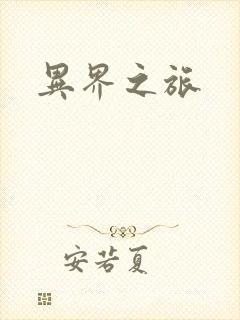 異界之旅
安若夏